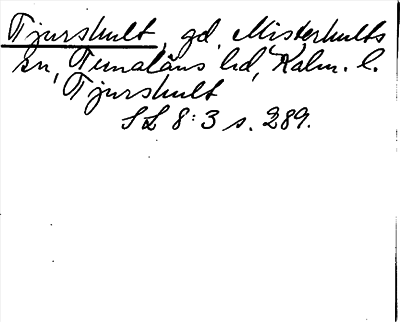 Tjurshult, gd, Misterhults
sn, Tunaläns hd, Kalm. l.
Tjurshult
SL 8:3 s. 289.